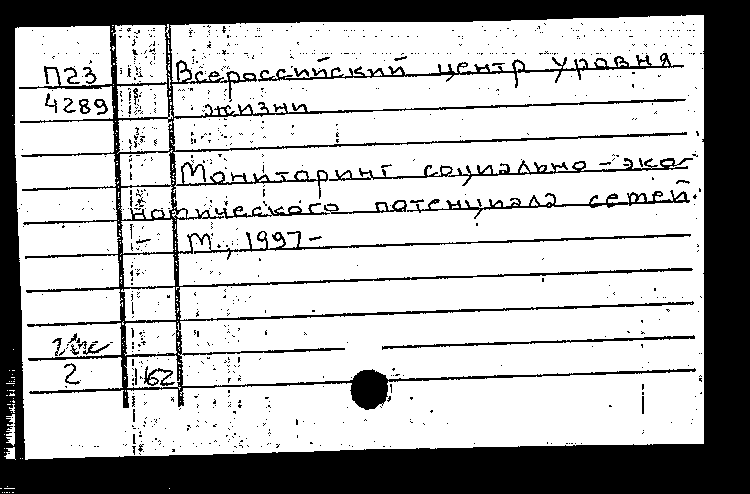 П23 Всероссийский центр уровня
4289 жизни
Мониторинг социально-эко-
номического потенциала семей.
М., 1997-
2 162